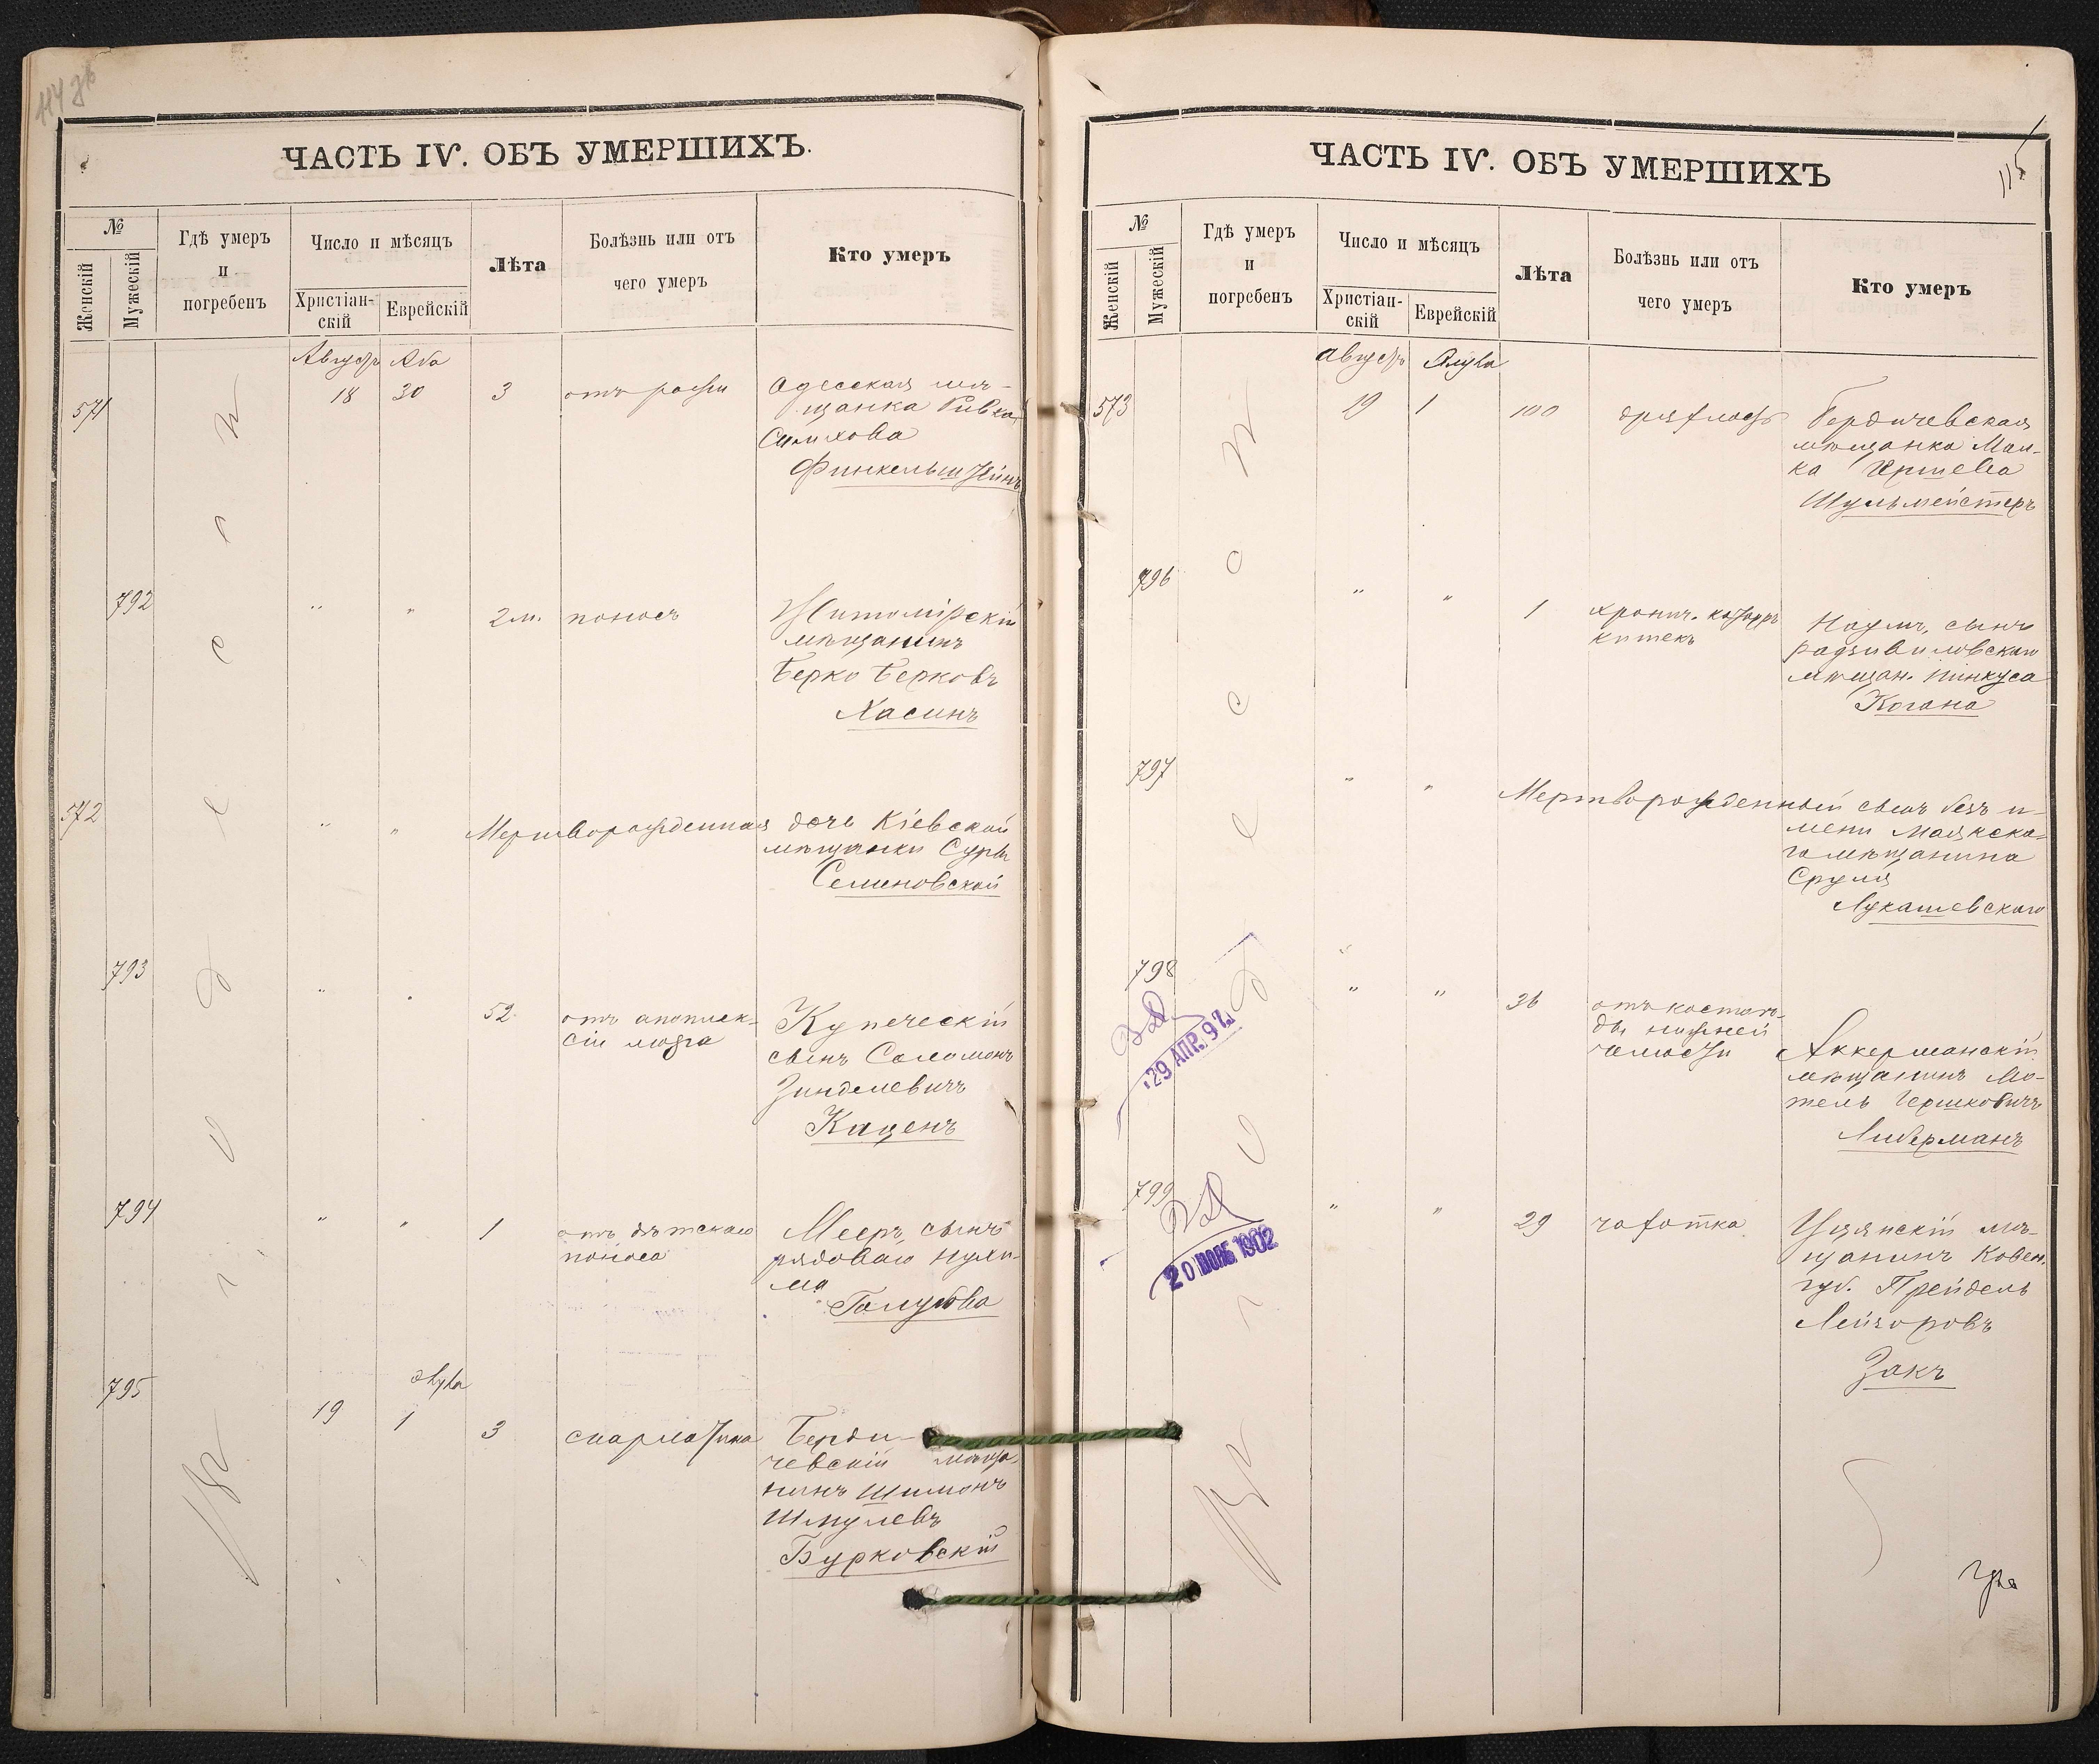 114 зв
ЧАСТЬ IV. ОБЪ УМЕРШИХЪ.
№
Женскій
Мужескій
Гдѣ умеръ
и
погребенъ
Число и мѣсяцъ
Христіан-
скій
Еврейскій
Лѣта
Болѣзнь или отъ
чего умеръ
Кто умеръ
Въ г. Одессѣ
Август Аба
571 18 30 3 отъ Одесская мѣ-
щанка Ривка
Финкельштейнъ
792 " " 2 м. поносъ Житомірскій
мѣщанинъ
Берко Берковъ
Хасинъ
572 " " Мертворожденная дочь Кіевской
мѣщанки Суры
Семеновской
793 " " 52 отъ апоплек-
сіи мозга
Купеческій
сынъ Соломонъ
Зинделевичъ
Каценъ
794 " " 1 отъ дѣтскаго
поноса
Мееръ, сынъ
рядоваго Нухи-
ма
Голубова
Элула
795 19 1 3 скарлатина Берди-
чевскій мѣща-
нинъ Шимонъ
Шмулевъ
Бурковскій
115
ЧАСТЬ IV. ОБЪ УМЕРШИХЪ
№
Женскій
Мужескій
Гдѣ умеръ
и
погребенъ
Число и мѣсяцъ
Христіан-
скій
Еврейскій
Лѣта
Болѣзнь или отъ
чего умеръ
Кто умеръ
Въ г. Одессѣ
Август Элула
573 19 1 100 дряхлость Бердичевская
мѣщанка Мал-
ка Иршева
Шульмейстеръ
796 " " 1 хронич. катарръ
кишекъ
Наумъ, сынъ
радзивиловскаго
мѣщан. Пинкуса
Когана
797 " " Мертворожденный сынъ безъ и-
мени Маякска-
го мѣщанина
Сруля
Лукашевскаго
798 " " 36 отъ костоѣ-
ды нижней
челюсти
Аккерманскій
мѣщанинъ Мо-
тель Гершковичъ
Либерманъ
29 АПР. 97
799 " " 29 чахотка мѣ-
щанинъ Ковен.
губ. Прейдель
Лейзоровъ
Закъ
20 1902